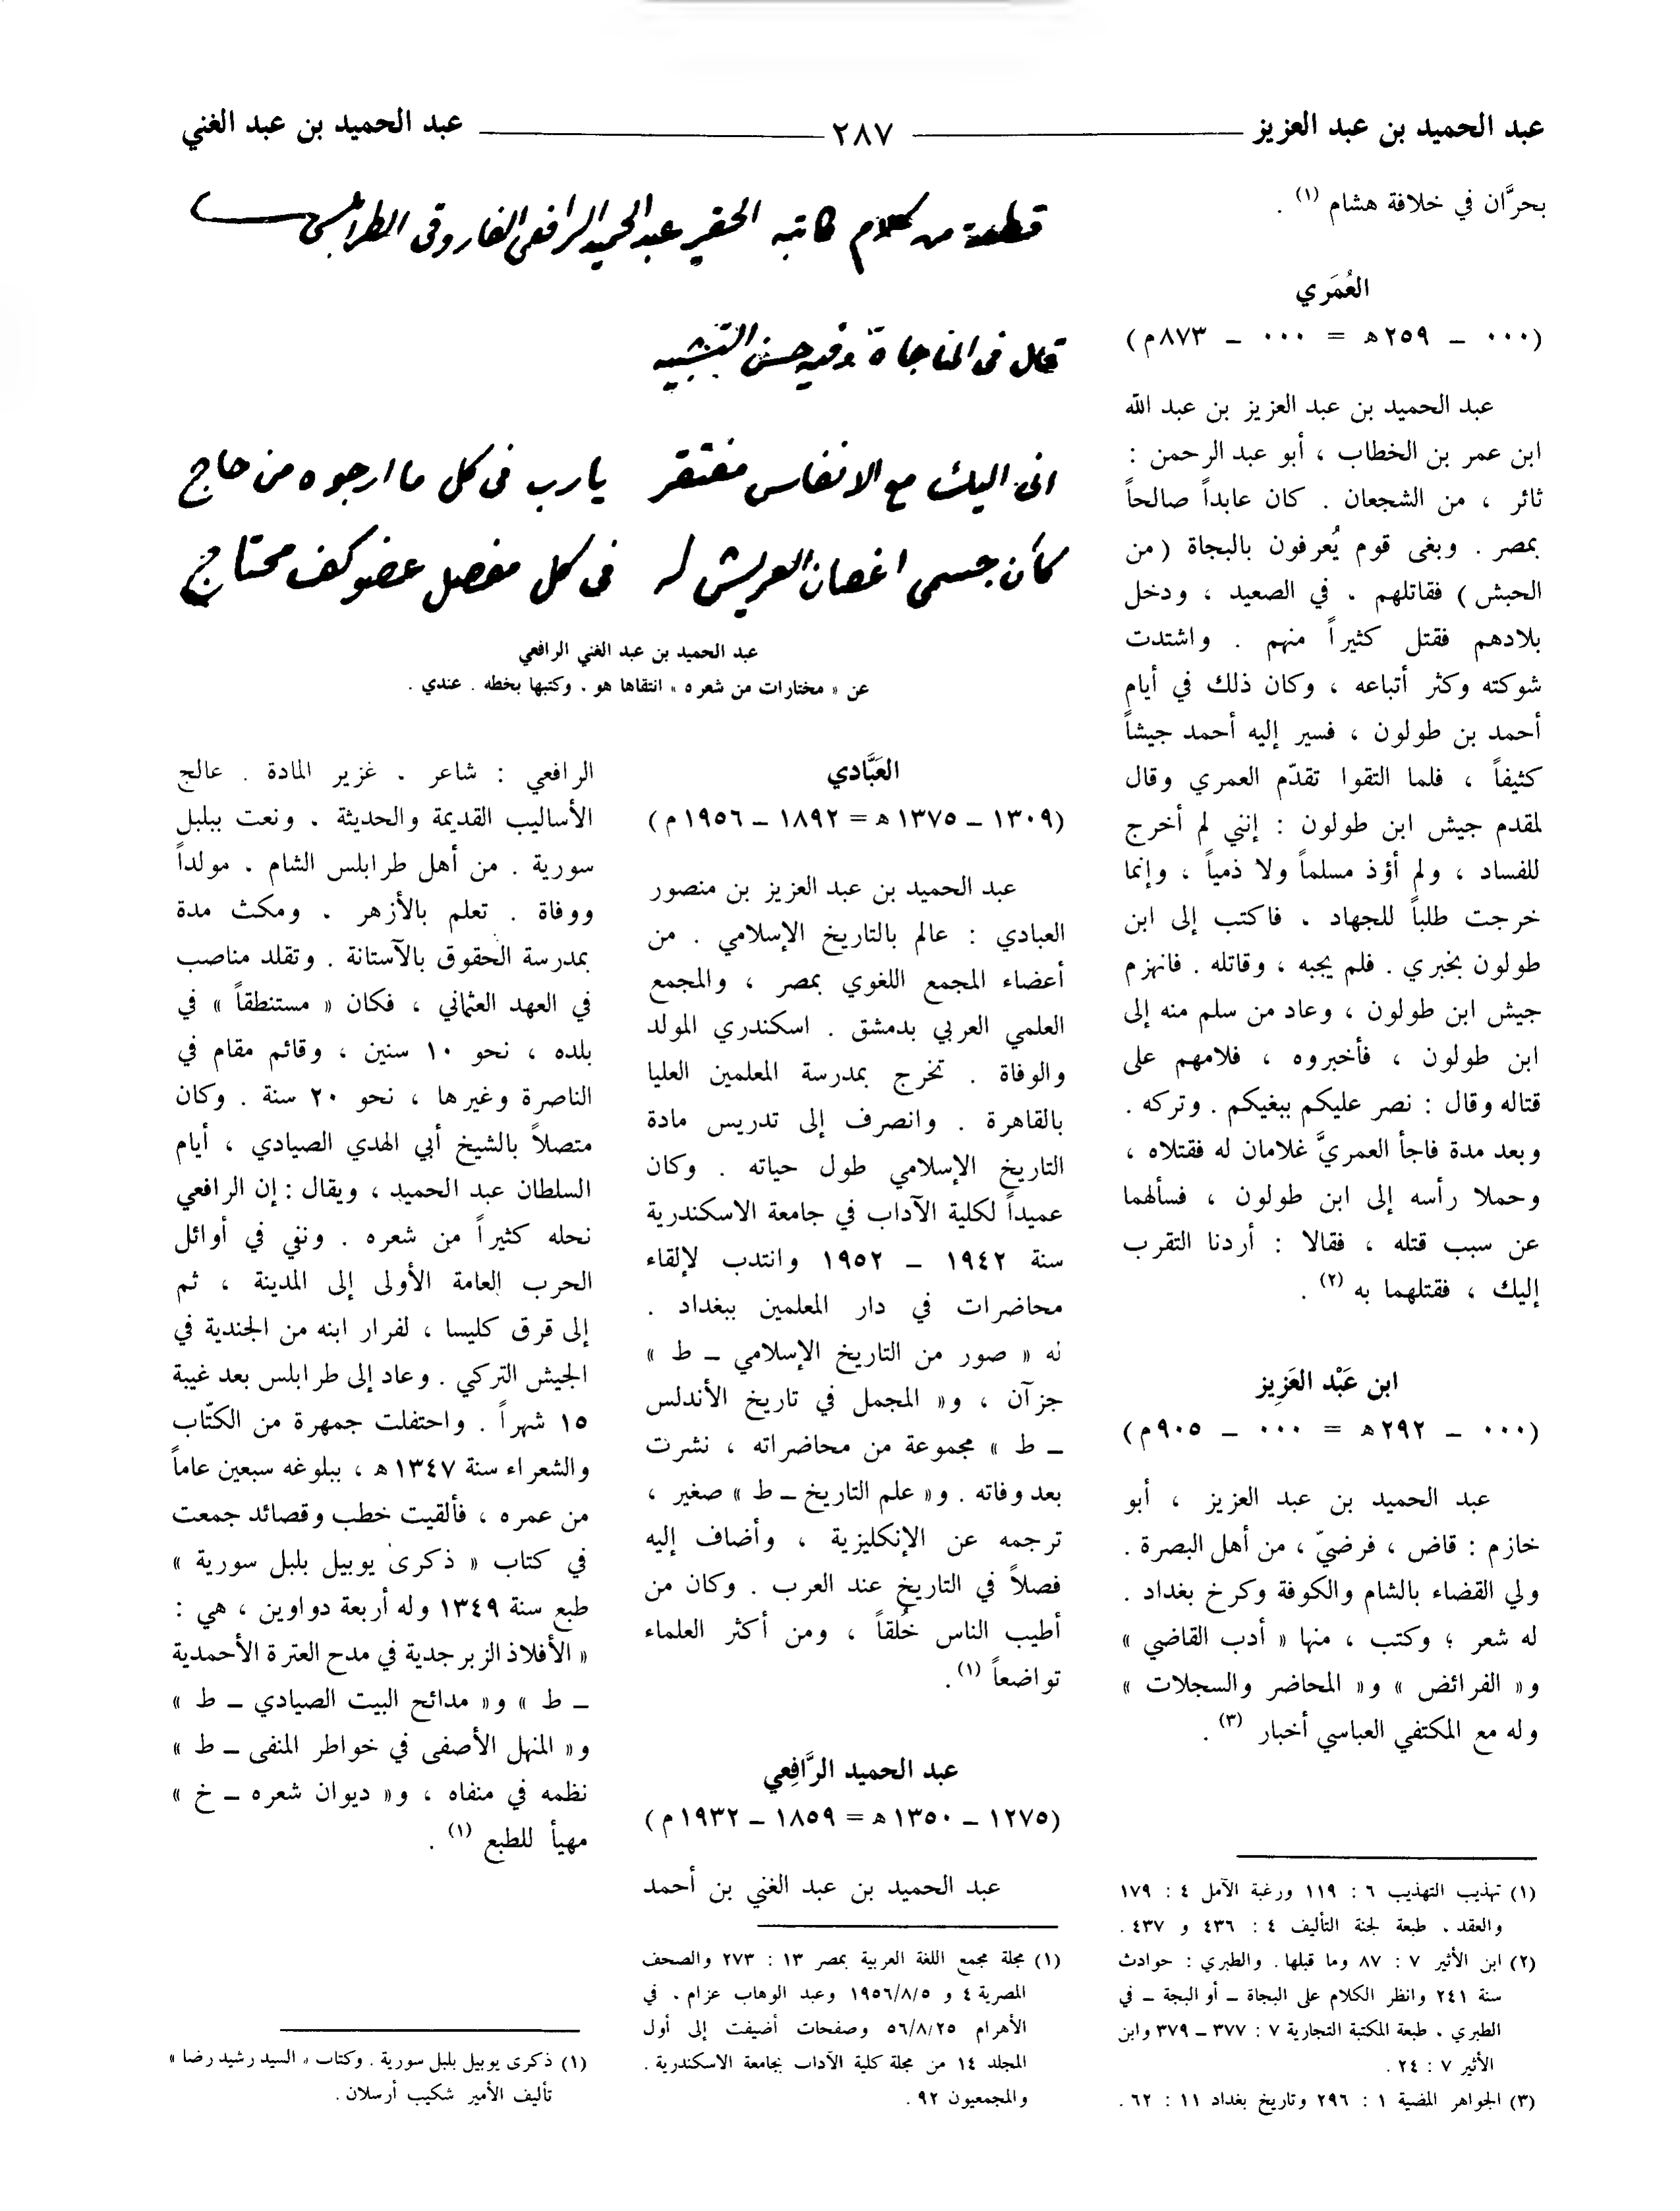 عبد الحميد بن عبد العزيز ٢٨٧ عبد الحميد بن عبد الغني
بحرَّان في خلافة هشام (١) .
العُمَري
(٠٠٠ - ٢٥٩ه = ٠٠٠ - ٨٧٣م)
عبد الحميد بن عبد العزيز بن عبد الله
ابن عمر بن الخطاب ، أبو عبد الرحمن :
ثائر ، من الشجعان . كان عابداً صالحاً
بمصر . وبغى قوم يُعرفون بالبجاة (من
الحبش) فقاتلهم . في الصعيد ، ودخل
بلادهم فقتل كثيراً منهم . واشتدت
شوكته وكثر أتباعه ، وكان ذلك في أيام
أحمد بن طولون ، فسير إليه أحمد جيشاً
كثيفاً ، فلما التقوا تقدّم العمري وقال
لمقدم جيش ابن طولون : إنني لم أخرج
للفساد ، ولم أؤذ مسلماً ولا ذمياً ، وإنما
خرجت طلباً للجهاد . فاكتب إلى ابن
طولون بخبري . فلم يجبه ، وقاتله . فانهزم
جيش ابن طولون ، وعاد من سلم منه إلى
ابن طولون ، فأخبروه ، فلامهم على
قتاله وقال : نصر عليكم ببغيكم . وتركه .
وبعد مدة فاجأ العمريَّ غلامان له فقتلاه ،
وحملا رأسه إلى ابن طولون ، فسألهما
عن سبب قتله ، فقالا : أردنا التقرب
إليك ، فقتلهما به (٢) .
ابن عَبْد العَزِيز
(٠٠٠ - ٢٩٢ه = ٠٠٠ - ٩٠٥م)
عبد الحميد بن عبد العزيز ، أبو
خازم : قاض ، فرضيّ ، من أهل البصرة .
ولي القضاء بالشام والكوفة وكرخ بغداد .
له شعر ؛ وكتب ، منها « أدب القاضي »
و« الفرائض » و« المحاضر والسجلات »
وله مع المكتفي العباسي أخبار (٣) .
(١) تهذيب التهذيب ٦ : ١١٩ ورغبة الآمل ٤ : ١٧٩
والعقد . طبعة لجنة التأليف ٤ : ٤٣٦ و ٤٣٧ .
(٢) ابن الأثير ٧ : ٨٧ وما قبلها . والطبري : حوادث
سنة ٢٤١ وانظر الكلام على البجاة - أو البجة - في
الطبري . طبعة المكتبة التجارية ٧ : ٣٧٧ - ٣٧٩ وابن
الأثير ٧ : ٢٤ .
(٣) الجواهر المضية ١ : ٢٩٦ وتاريخ بغداد ١١ : ٦٢ .
قطعة من كلام كاتبه الحقير عبد الحميد الرافعي الفاروقي الطرابلسي
قال في المناجاة وفيه حسن التشبيه
اني اليك مع الانفاس مفتقر يارب في كل ما ارجوه من حاج
كأن جسمي اغصان العريش له في كل مفصل عضو كف محتاج
عبد الحميد بن عبد الغني الرافعي
عن « مختارات من شعره » انتقاها هو . وكتبها بخطه . عندي .
العَبَّادي
(١٣٠٩ - ١٣٧٥ ه = ١٨٩٢ - ١٩٥٦ م)
عبد الحميد بن عبد العزيز بن منصور
العبادي : عالم بالتاريخ الإسلامي . من
أعضاء المجمع اللغوي بمصر ، والمجمع
العلمي العربي بدمشق . اسكندري المولد
والوفاة . تخرج بمدرسة المعلمين العليا
بالقاهرة . وانصرف إلى تدريس مادة
التاريخ الإسلامي طول حياته . وكان
عميداً لكلية الآداب في جامعة الاسكندرية
سنة ١٩٤٢ - ١٩٥٢ وانتدب لإلقاء
محاضرات في دار المعلمين ببغداد .
له « صور من التاريخ الإسلامي - ط »
جزآن ، و« المجمل في تاريخ الأندلس
- ط » مجموعة من محاضراته ، نشرت
بعد وفاته . و« علم التاريخ - ط » صغير ،
ترجمه عن الإنكليزية ، وأضاف إليه
فصلاً في التاريخ عند العرب . وكان من
أطيب الناس خُلقاً ، ومن أكثر العلماء
تواضعاً (١) .
عبد الحميد الرَّافِعي
(١٢٧٥ - ١٣٥٠ ه = ١٨٥٩ - ١٩٣٢ م)
عبد الحميد بن عبد الغني بن أحمد
(١) مجلة مجمع اللغة العربية بمصر ١٣ : ٢٧٣ والصحف
المصرية ٤ و ١٩٥٦/٨/٥ وعبد الوهاب عزام . في
الأهرام ٥٦/٨/٢٥ وصفحات أضيفت إلى أول
المجلد ١٤ من مجلة كلية الآداب بجامعة الاسكندرية .
والمجمعيون ٩٢ .
الرافعي : شاعر . غزير المادة . عالج
الأساليب القديمة والحديثة . ونعت ببلبل
سورية . من أهل طرابلس الشام . مولداً
ووفاة . تعلم بالأزهر . ومكث مدة
بمدرسة الحقوق بالآستانة . وتقلد مناصب
في العهد العثماني ، فكان « مستنطقاً » في
بلده ، نحو ١٠ سنين ، وقائم مقام في
الناصرة وغيرها ، نحو ٢٠ سنة . وكان
متصلاً بالشيخ أبي الهدي الصيادي ، أيام
السلطان عبد الحميد ، ويقال : إن الرافعي
نحله كثيراً من شعره . ونفي في أوائل
الحرب العامة الأولى إلى المدينة ، ثم
إلى قرق كليسا ، لفرار ابنه من الجندية في
الجيش التركي . وعاد إلى طرابلس بعد غيبة
١٥ شهراً . واحتفلت جمهرة من الكتّاب
والشعراء سنة ١٣٤٧ ه ، ببلوغه سبعين عاماً
من عمره ، فألقيت خطب وقصائد جمعت
في كتاب « ذكرى يوبيل بلبل سورية »
طبع سنة ١٣٤٩ وله أربعة دواوين ، هي :
« الأفلاذ الزبرجدية في مدح العترة الأحمدية
- ط » و« مدائح البيت الصيادي - ط »
و« المنهل الأصفى في خواطر المنفى - ط »
نظمه في منفاه ، و« ديوان شعره - خ »
مهيأ للطبع (١) .
(١) ذكرى يوبيل بلبل سورية . وكتاب « السيد رشيد رضا »
تأليف الأمير شكيب أرسلان .